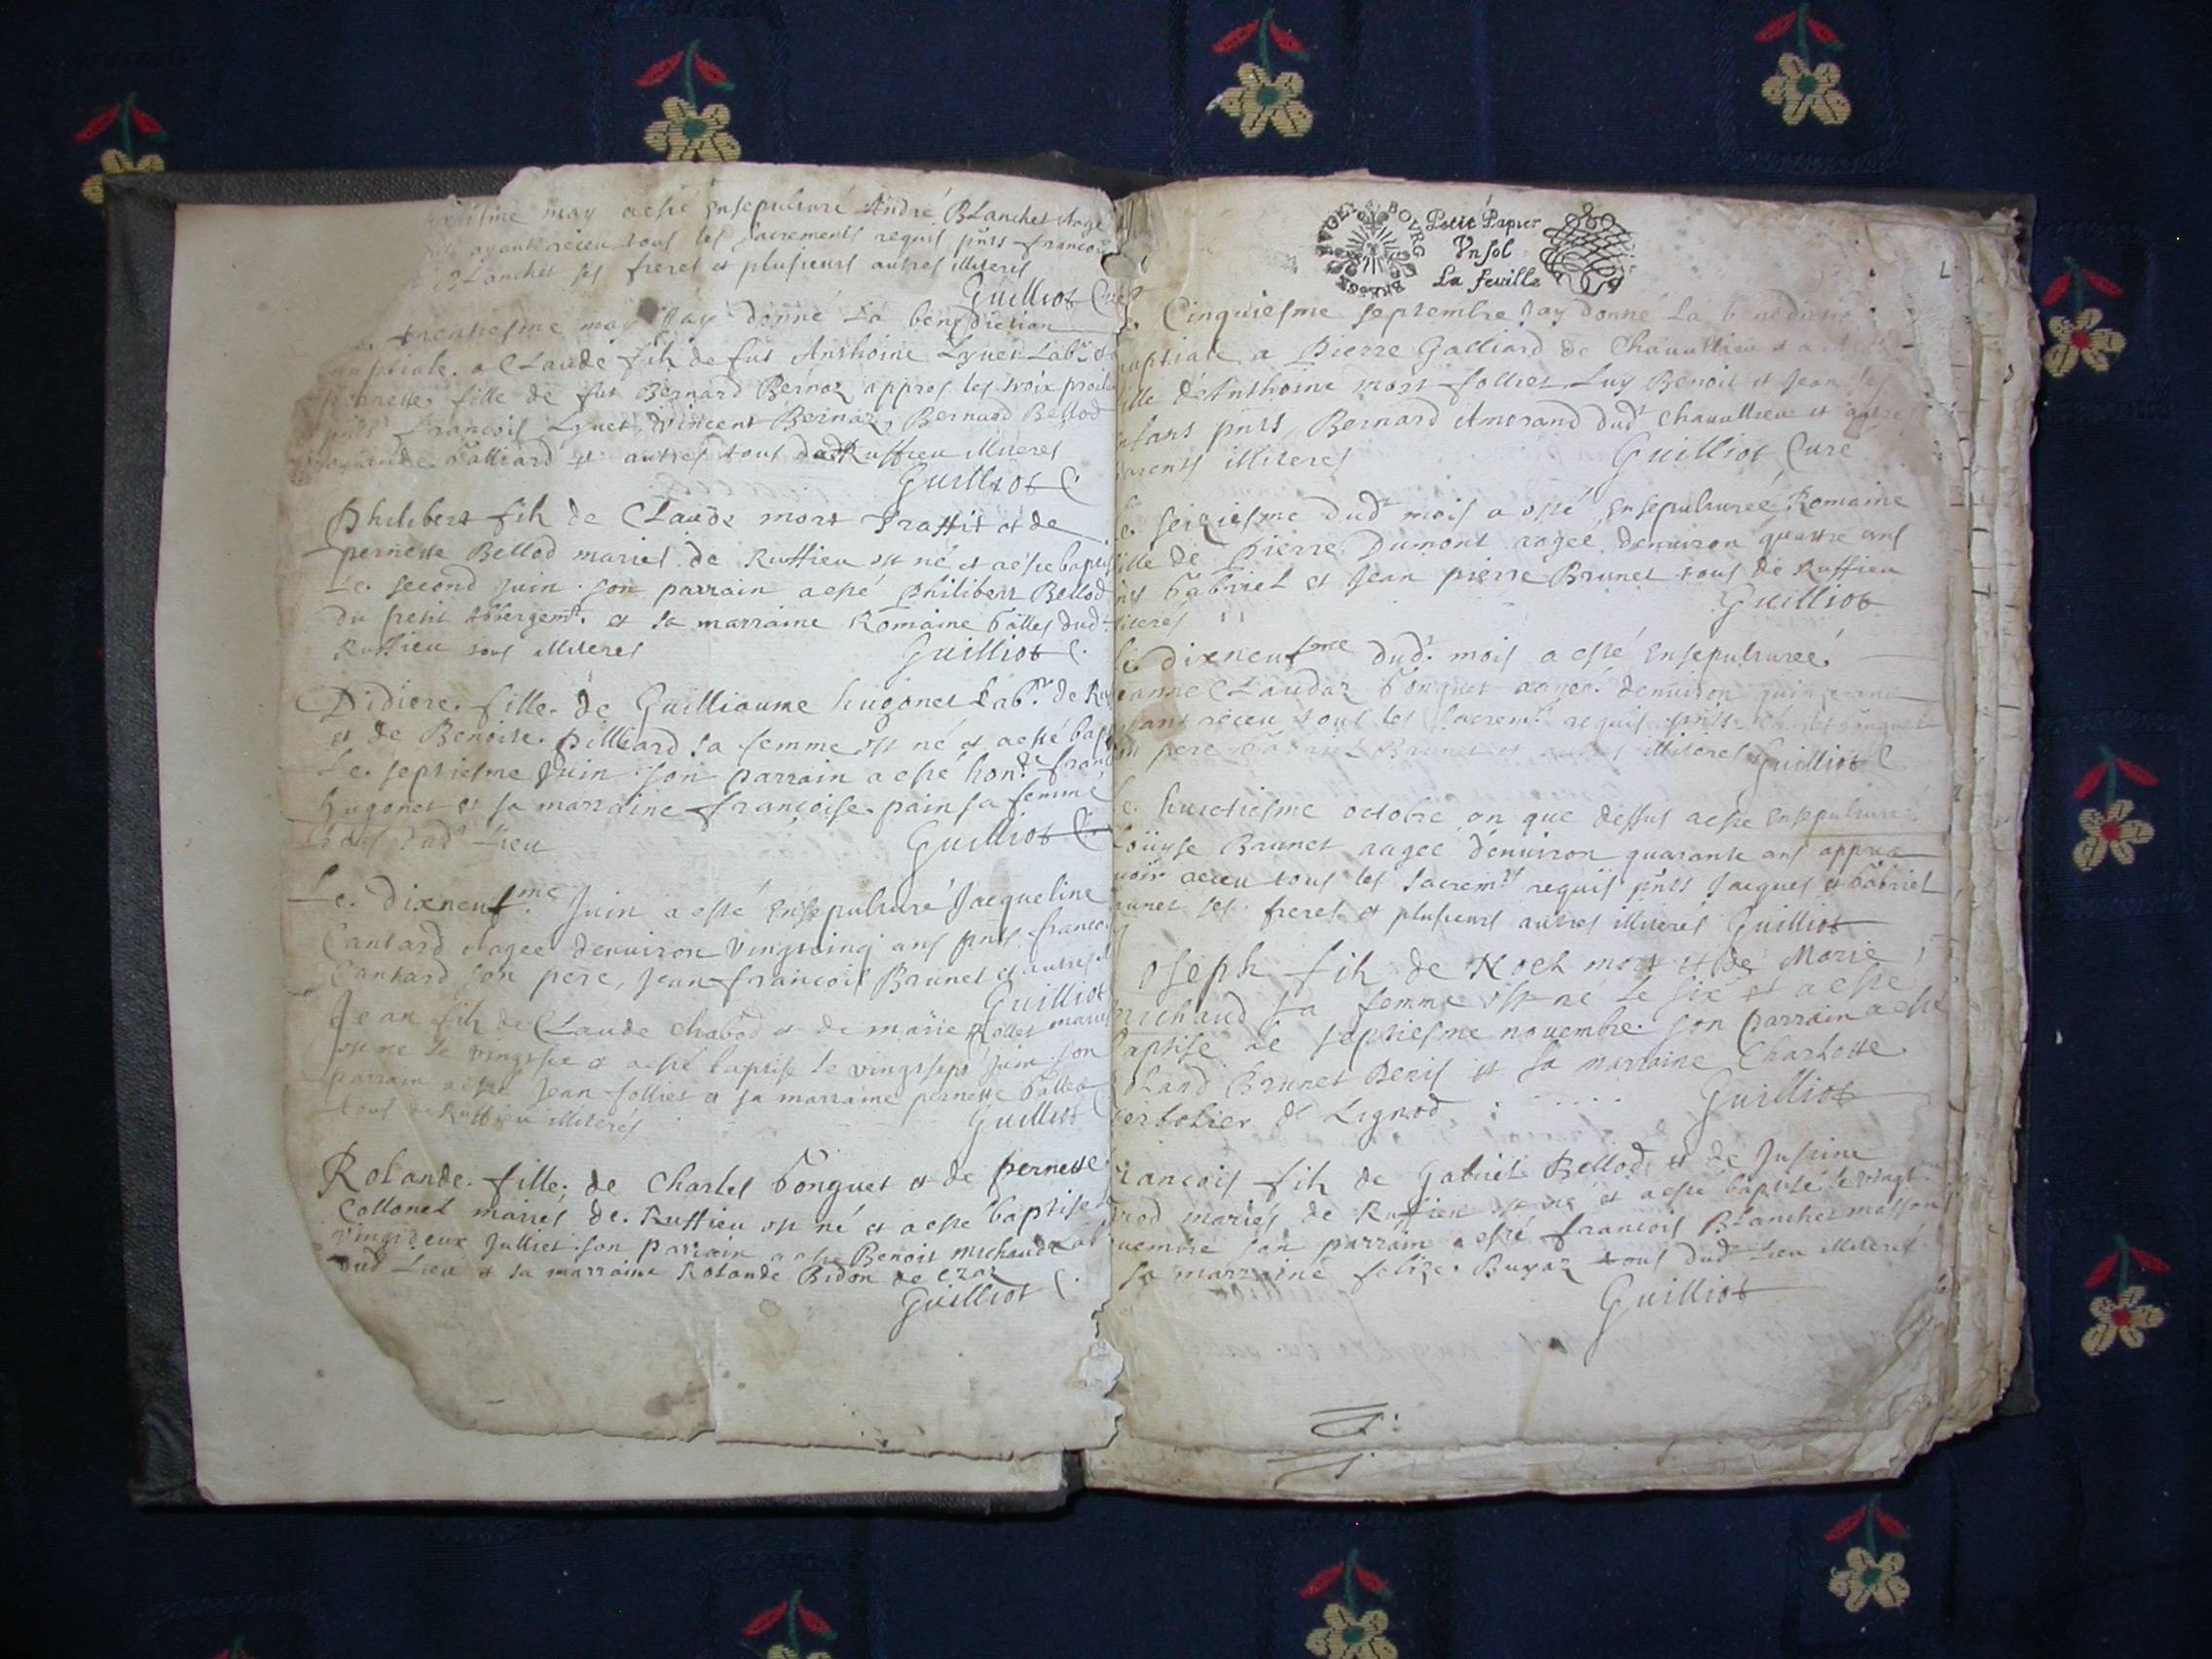 may a esté ensepulturé André Blanchet aagé
ayant receu tous les sacrements requis pnts francois
Blanchet ses freres et plusieurs autres illiteres
Guilliot Curé
trentiesme may Jay donné La benediction
nuptiale a Claude fils de fut Anthoine Lyuet Labr et
pernette fille de fut Bernard Bernaz appres les troix
pnts francois Lyuet, vincent Bernaz, Bernard Bellod
Galliard et autres tous dud Ruffieu illiteres
Guilliot C.
Philibert fils de Claude mort Trassit et de
pernette Bellod mariés de Ruffieu est né et a esté baptisé
Le second Juin son parrain a esté philibert Bellod
du petit Abbergemt. et sa marraine Romaine Galles dudt
Ruffieu tous illiteres Guilliot C.
Didiere fille de Guilliaume hugonet Labr. de
et de Benoite pilliard sa femme est né et a esté
Le septiesme Juin son parrain a esté hond.
hugonet et sa marraine francoise pain sa femme
tous dud Lieu Guilliot C
Le dixneufme Juin a esté ensepulturé Jacqueline
Cantard aagee denuiron vingtcinq ans pnts
Cantard son pere, Jean francois Brunet et autres
Guilliot
Jean fils de Claude Chabod et de marie Rollet mariés
est né le vingtsix et a esté baptise le vingtsept Juin son
parrain a esté Jean follier et sa marraine pernette
tous de Ruffieu illiterés Guilliot C
Rolande fille de Charles Gonguet et de pernette
Collonet mariés de Ruffieu est né et a esté baptisé
vingtdeux Julliet son parrain a esté Benoit michaud
dud Lieu et sa marraine Rolande Bidon de
Guilliot C.
BVGEY BOVRG
Petit Papier
Vn sol
La feuille
Cinquiesme septembre Jay donné La benediction
nuptiale a Pierre Galliard de Chauullieu et a
fille d'Anthoine mort follier Luy Benoit et Jean ses
enfans pnts, Bernard Amerand dudt Chauullieu et autres
parents illiteres Guilliot Curé
seiziesme dudt mois a esté ensepulturée Romaine
fille de Pierre Dumont aagée denuiron quattre ans
pnts Gabriel et Jean pierre Brunet tous de Ruffieu
illiteres Guilliot
Le dixneufme dud. mois a esté ensepulturée
Jeanne Claudaz Gonguet aagée denuiron quinze ans
ayant receu tous les sacremts requis pnts
son pere Brunet et autres illiteres Guilliot C
Le huictiesme octobre an que dessus a esté ensepulturé
Louyse Brunet aagee denuiron quarante ans appres
auoir receu tous les sacremts requis pnts Jacques et Gabriel
Brunet ses freres et plusieurs autres illiteres Guilliot
Joseph fils de Noel mort et de Marie
michaud sa femme est né le six et a esté
baptisé le septiesme nouembre son parrain a esté
Brunet Benis et sa marraine Charlotte
de Lignod Guilliot
francois fils de Gabriel Bellod et de Justine
mariés de Ruffieu est né et a esté baptisé le vingt
nouembre son parrain a esté francois Blanchet masson
sa marraine felize Buyaz tous dudt Lieu illiterés
Guilliot